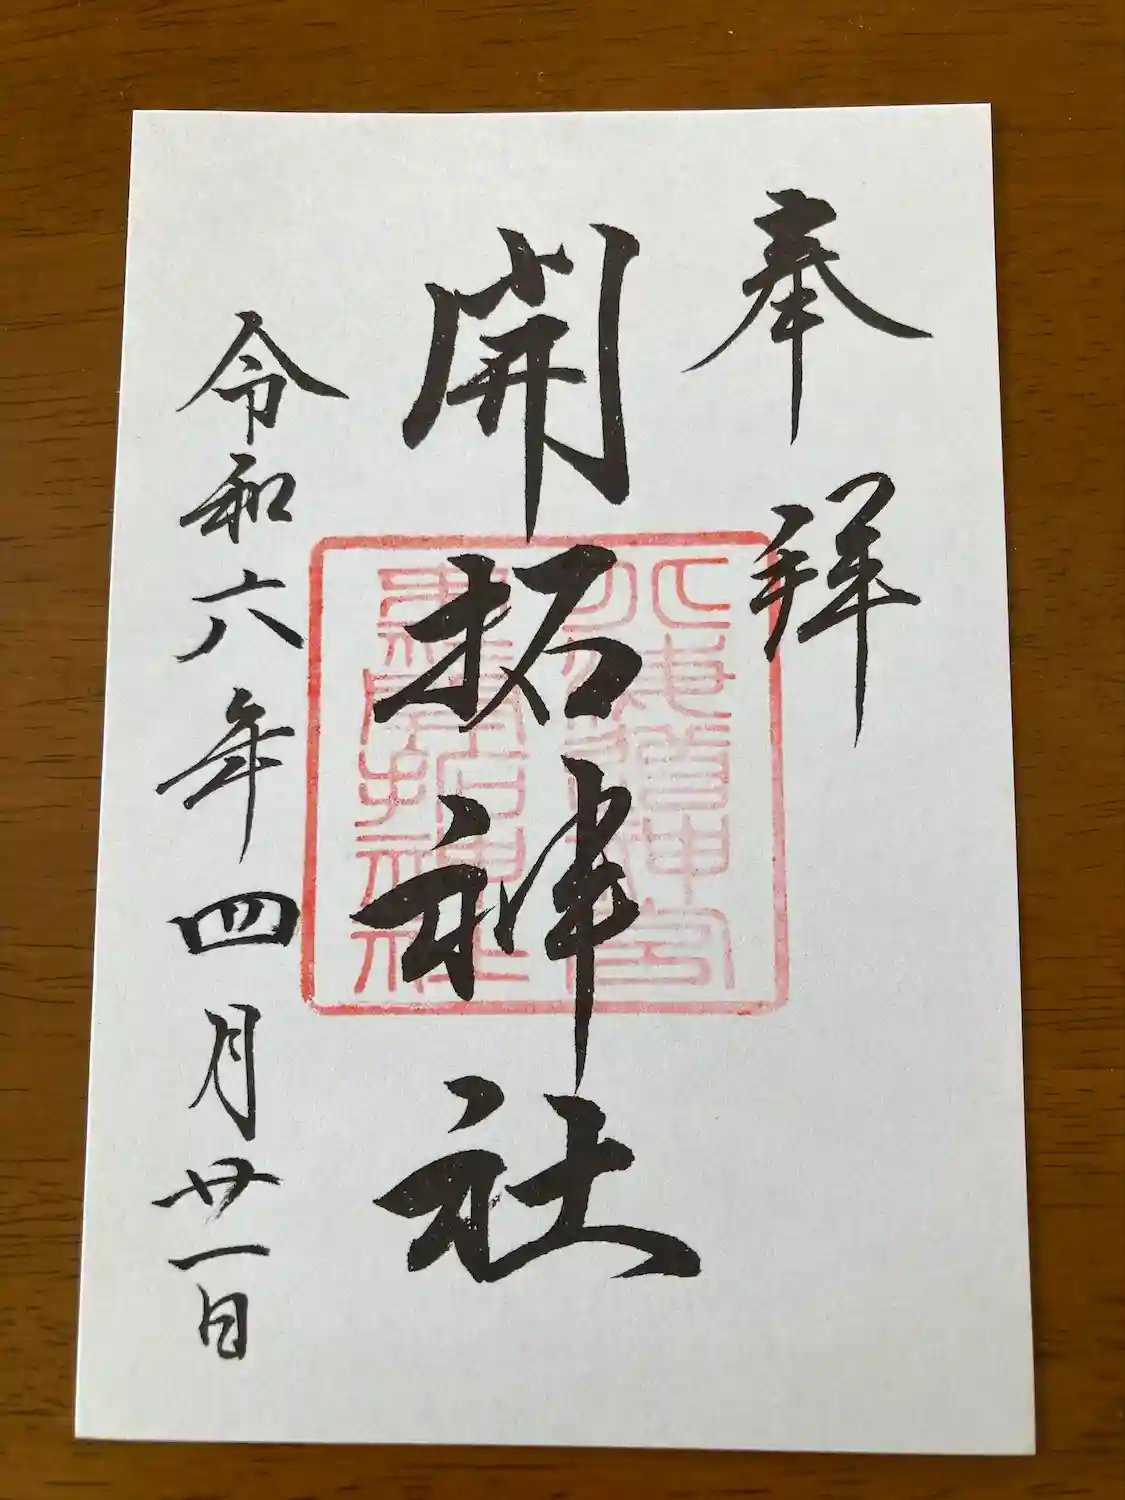 奉拝
開拓神社
北海道神宮
末社開拓神社
令和六年四月廿一日